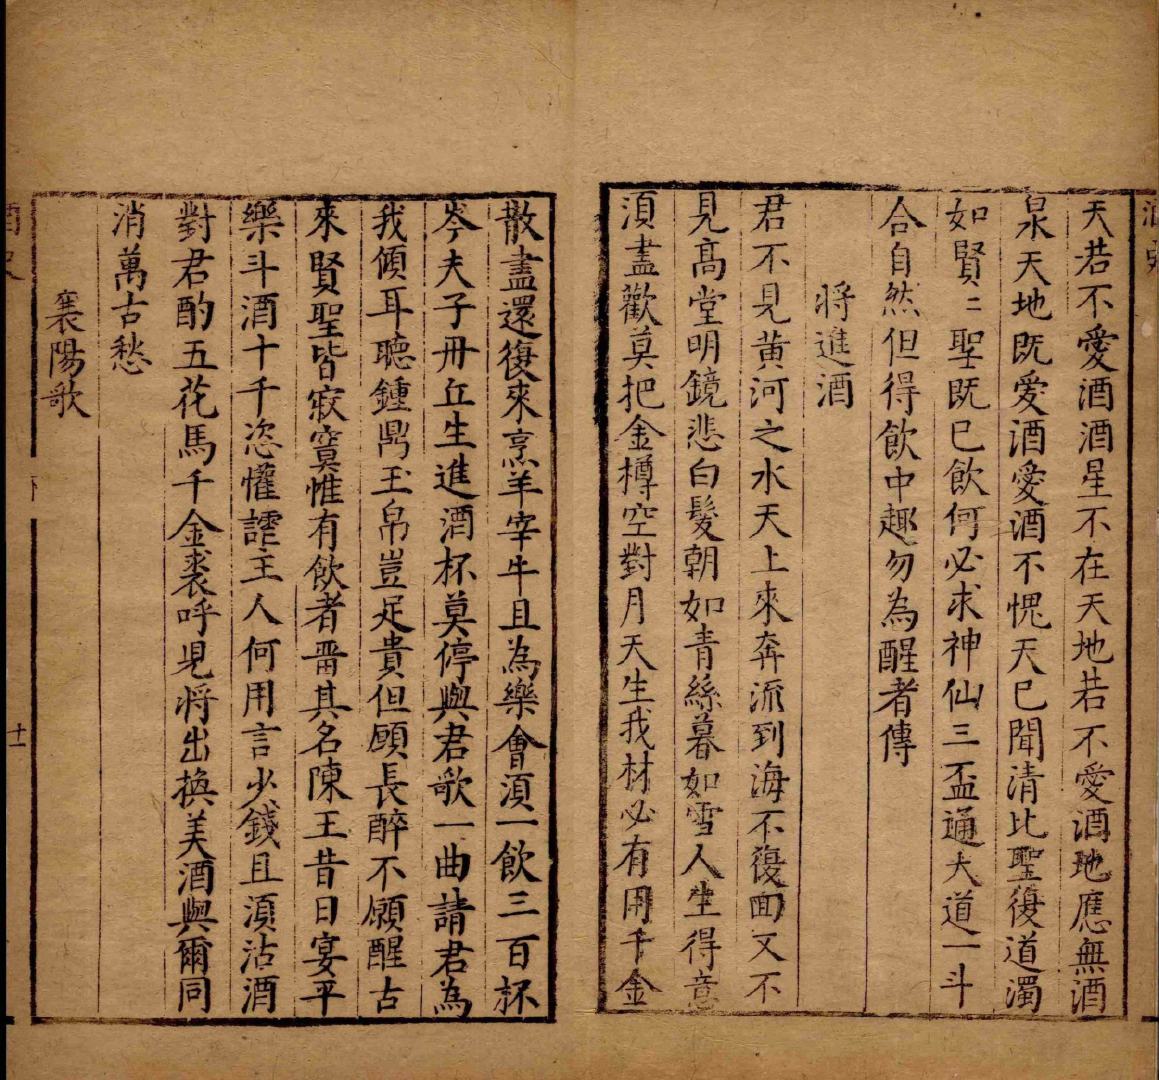 天若不愛酒酒星不在天地若不愛酒地應無酒
泉天地既愛酒愛酒不愧天已聞清比聖復道濁
如賢二聖既已飲何必求神仙三盃通大道一斗
合自然但得飲中趣勿為醒者傳
將進酒
君不見黃河之水天上來奔流到海不復面又不
見高堂明鏡悲白髮朝如青絲暮如雪人生得意
須盡歡莫把金樽空對月天生我材必有用千金
散盡還復來烹羊宰牛且為樂會須一飲三百杯
岑夫子丹丘生進酒杯莫停與君歌一曲請君為
我傾耳聽鍾鼎玉帛豈足貴但願長醉不願醒古
來賢聖皆寂寞惟有飲者畱其名陳王昔日宴平
樂斗酒十千恣懽謔主人何用言少錢且須沽酒
對君酌五花馬千金裘呼児將出換美酒與爾同
消萬古愁
襄陽歌
十一